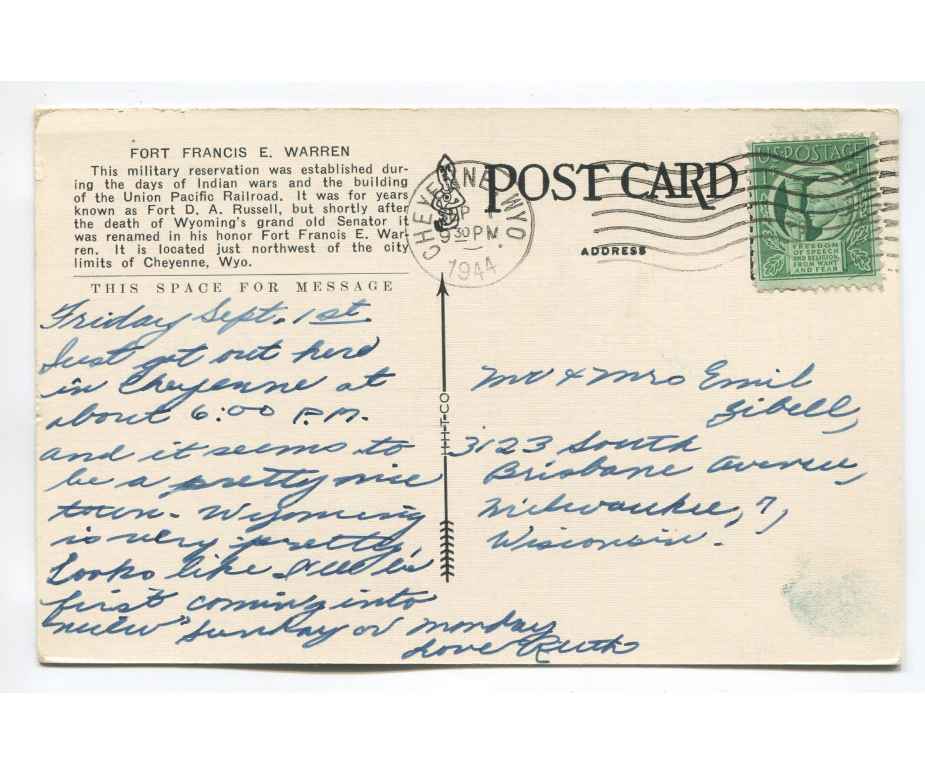 FORT FRANCIS E. WARREN
This military reservation was established dur-
ing the days of Indian wars and the building
of the Union Pacific Railroad. It was for years
known as Fort D. A. Russell, but shortly after
the death of Wyoming's grand old Senator it
was renamed in his honor Fort Francis E. War-
ren. It is located just northwest of the city
limits of Cheyenne, Wyo.
THIS SPACE FOR MESSAGE
Friday Sept. 1st.
Just got out here
in Cheyenne at
about 6:00 P.M.
and it seems to
be a pretty nice
town. Wyoming
is very pretty.
Looks like I'll be
first coming into
Sunday or Monday
Love Ruth
CHEYENNE WYO
9 30 PM
1944
POST CARD
ADDRESS
U.S. POSTAGE
FREEDOM
OF SPEECH
AND RELIGION,
FROM WANT
AND FEAR
Mr & Mrs Emil
Zibell,
3123 South
Brisbane Avenue,
Milwaukee, 7,
Wisconsin.